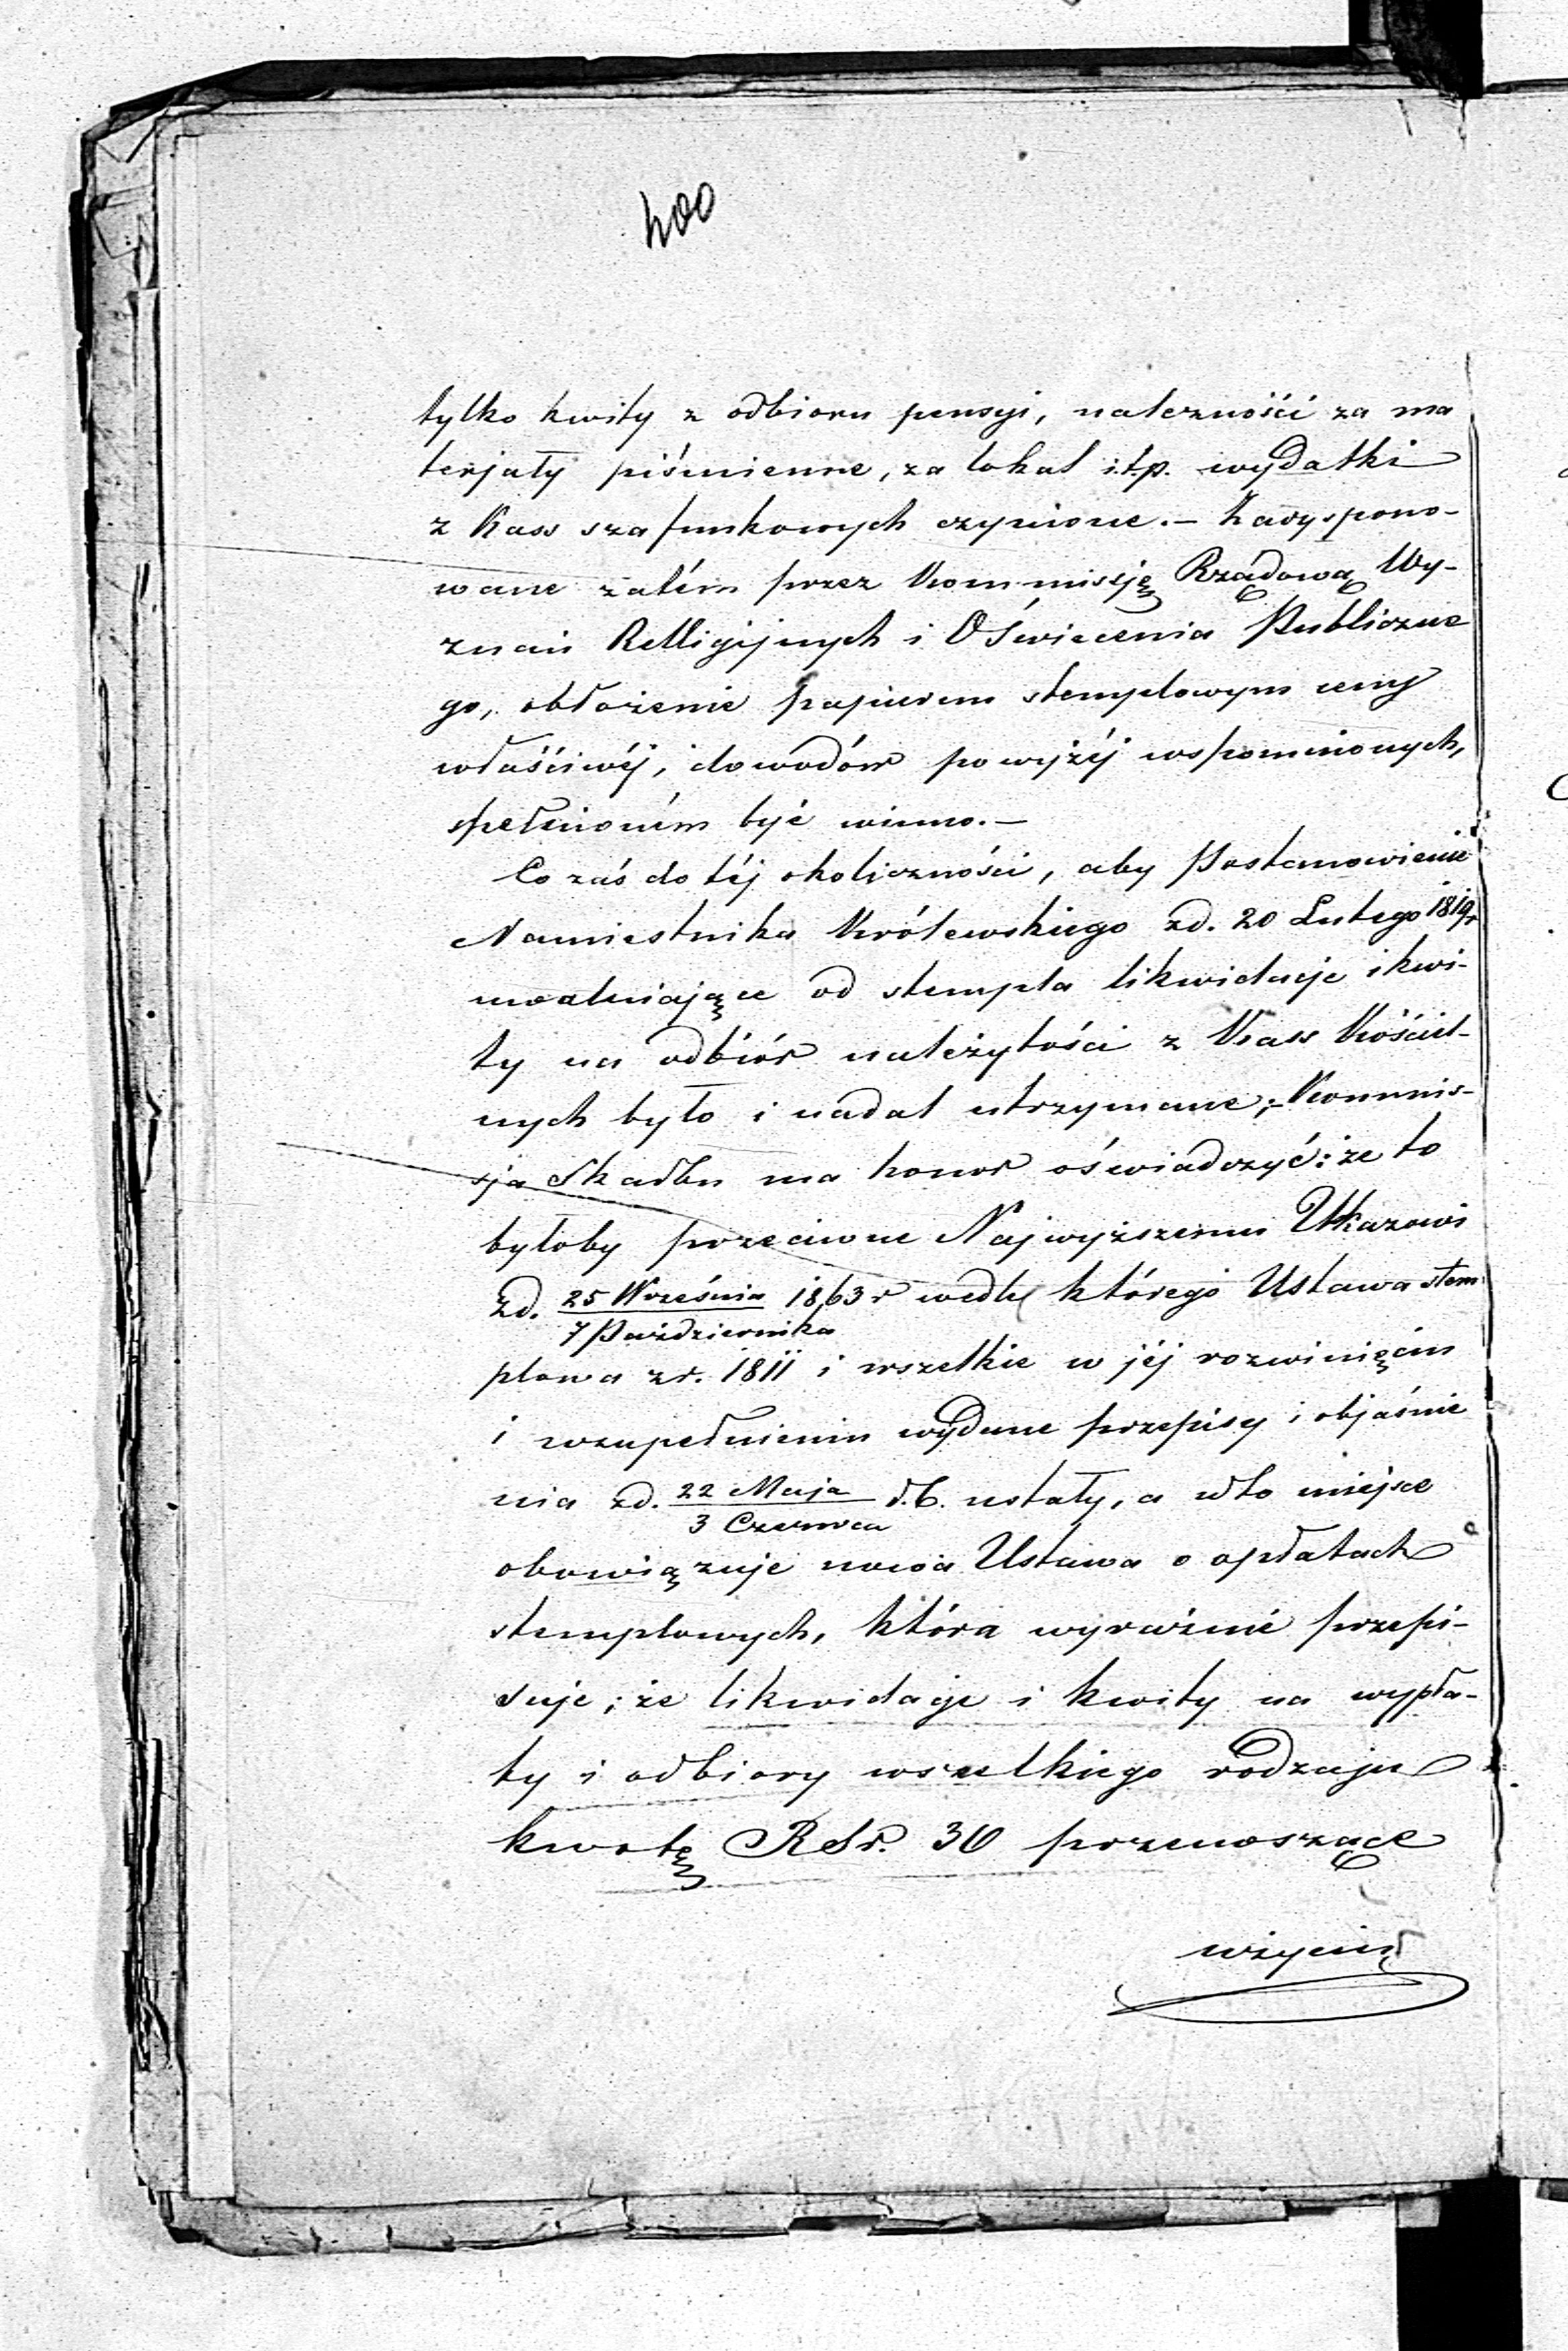 400
tylko kwity z odbioru pensyi, należności za ma
terjały piśmienne, za lokal i.t.p. wydatki
z Kass szafunkowych czynione. – Zadyspono-
wane zatém przez Kommissję Rządową Wy-
znań Relligijnych i Oświecenia Publiczne
go, obłożenie papierem stemplowym ceny
właściwéj, dowodów powyżéj wspomnionych,
spełnioném być winno. –
Co zaś do téj okoliczności, aby Postanowienie
Namiestnika Królewskiego zd. 20 Lutego 1819r
uwalniające od stempla likwidacje i kwi-
ty na odbiór należytości z Kass Kościel-
nych było i nadal utrzymane; – Kommis-
sja Skarbu ma honor oświadczyć: że to
byłoby przeciwne Najwyższemu Ukazowi
zd. 25 Września 1863 r wedle którego Ustawa stem
7 Października
plowa z r. 1811 i wszelkie w jéj rozwinięciu
i uzupełnieniu wydane przepisy i objaśnie
nia zd. 22 Maja r.b. ustały, a w to miejsce
3 Czerwca
obowiązuje nowa Ustawa o opłatach
stemplowych, która wyraźnie przepi-
suje; że likwidacje i kwity na wypła-
ty i odbiory wszelkiego rodzaju
kwotę RSr. 30 przenoszące